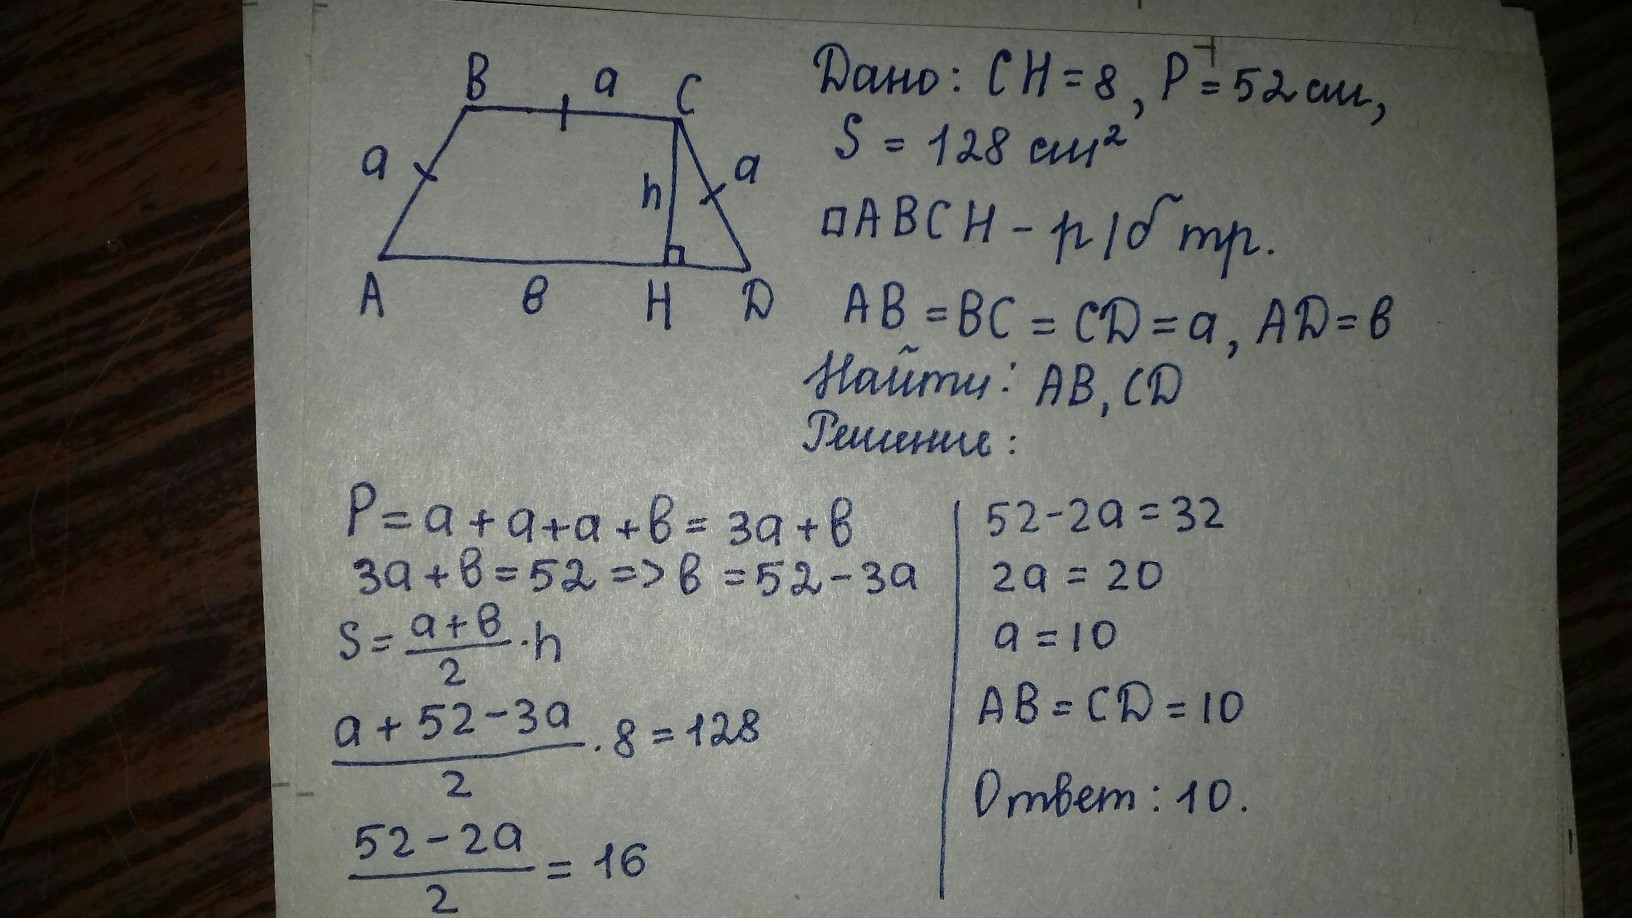 B a C
a h a
A в H D
Дано: CH = 8, P = 52 см,
S = 128 см²
□ABCH - р/б тр.
AB = BC = CD = a, AD = в
Найти: AB, CD
Решение:
P = a + a + a + в = 3a + в
3a + в = 52 => в = 52 - 3a
S = (a + в)/2 · h
(a + 52 - 3a)/2 · 8 = 128
(52 - 2a)/2 = 16
52 - 2a = 32
2a = 20
a = 10
AB = CD = 10
Ответ: 10.